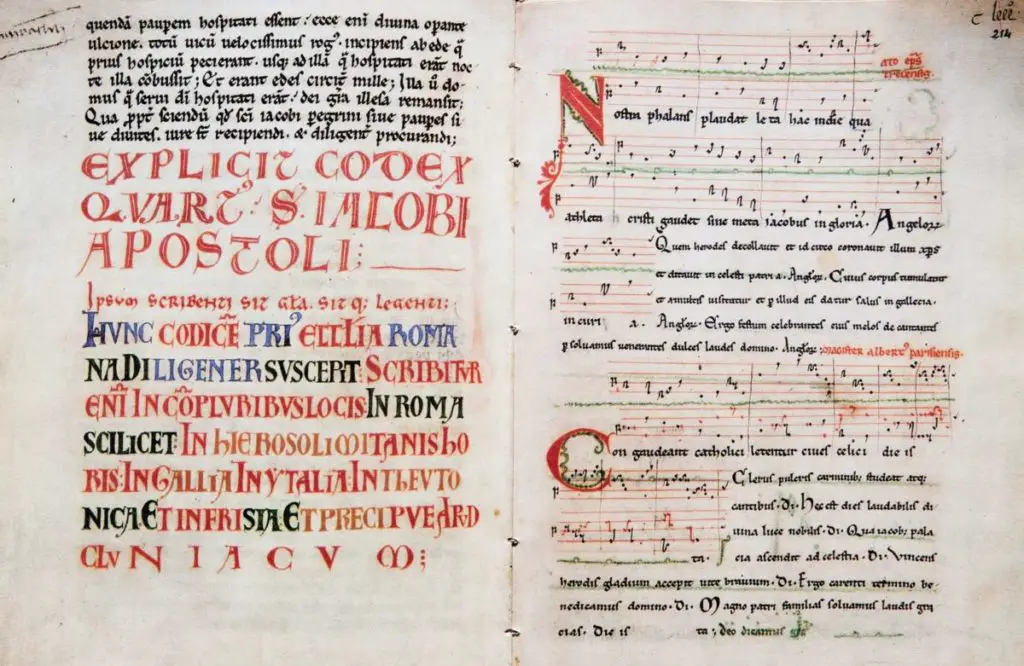 quendā paupem hospitati essent: ecce enī divina opante
ulcione. totū uicū velocissimus rog⁹. incipiens ab ede q̄
prius hospiciū pecierant. usq; ad illā q̄ hospitati erāt noc
te illa cōbussit; Et erant edes circit̄ mille; Illa ū do
mus q̄ serui dī hospitati erāt. dei gr̄a illesa remansit;
Qua ppt̄ sciendū qd̄ scī iacobi pegrini siue paupes si
ue diuites. iure st̄ recipiendi. & diligent̄ procurandi;
EXPLICIT CODEX
QVART⁹. S. IACOBI
APOSTOLI;
Ipsum scribenti sit gl̄a. sit q; legenti:
HVNC CODICĒ PRI⁹ ECCL̄IA ROMA
NA DILIGENER SVSCEPIT. SCRIBITVR
ENĪ IN CŌPLVRIBVS LOCIS. IN ROMA
SCILICET. IN HIEROSOLIMITANIS HO
RIS. IN GALLIA. IN YTALIA. IN THEVTO
NICA. ET IN FRISIA. ET PRECIPVE APVD
CLVNIACVM;
214
ato ep̄s
trecensis.
Nostra phalans plaudat leta hac indie qua
athleta cristi gaudet sine meta iacobus in gloria. Angelor̄
Quem herodes decollauit et id circo coronauit illum xp̄s
et ditauit in celesti patria. Anglor̄. Cuius corpus tumulatur
et amultis uisitatur et p illud eis datur salus in gallecia.
in curia. Anglor̄. Ergo festum celebrantes eius melos decantantes
psoluamus uenerantes dulces laudes domino. Anglor̄. magister albert⁹ parisiensis.
Congaudeant catholici letentur ciues celici die is
Clerus pulcris carminib; studeat atq;
cantibus. Di. Hec est dies laudabilis di
uina luce nobilis. Di. Qua iacob; pala
ta; cia ascendit ad celestia. Di. Vincens
herodis gladium accepit uite brauium. Di. Ergo carenti termino be
nedicamus domino. Di. Magno patri familias soluamus laudis gra
cias. Die is ta; deo dicamus